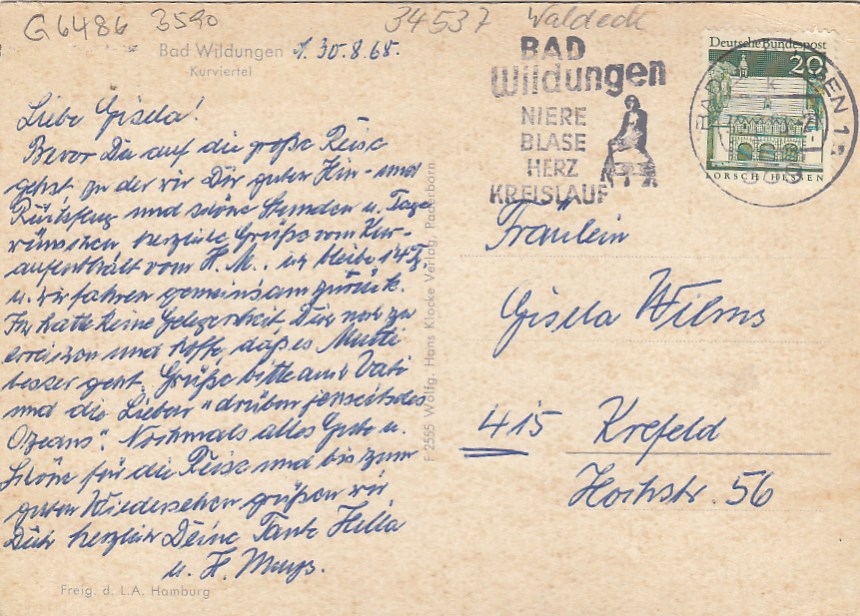 G6486 3590
34537 Waldeck
Bad Wildungen
Kurviertel
30.8.68.
BAD
Wildungen
NIERE
BLASE
HERZ
KREISLAUF
Deutsche Bundespost
20
LORSCH HESSEN
Liebe Gisela!
Bevor Du auf die große Reise
gehst zu der wir Dir guten Hin- und
Rückflug und schöne Stunden u. Tage
wünschen herzliche Grüße vom Kur-
aufenthalt vom H. M., ich bleibe 14 Tg
u. wir fahren gemeinsam zurück.
hatte keine Gelegenheit, Dich noch zu
erreichen und hoffe, daß es Mutti
besser geht. Grüße bitte auch Vati
und die Lieben "drüben jenseits des
Ozeans". Nochmals alles Gute u.
Schöne für die Reise und bis zum
guten Wiedersehen grüßen wir
Dich herzlich Deine Tante Hella
u. H.
Fräulein
Gisela Wilms
415 Krefeld
Hochstr. 56
F 2555 Wolfg. Hans Klocke Verlag, Paderborn
Freig. d. L.A. Hamburg